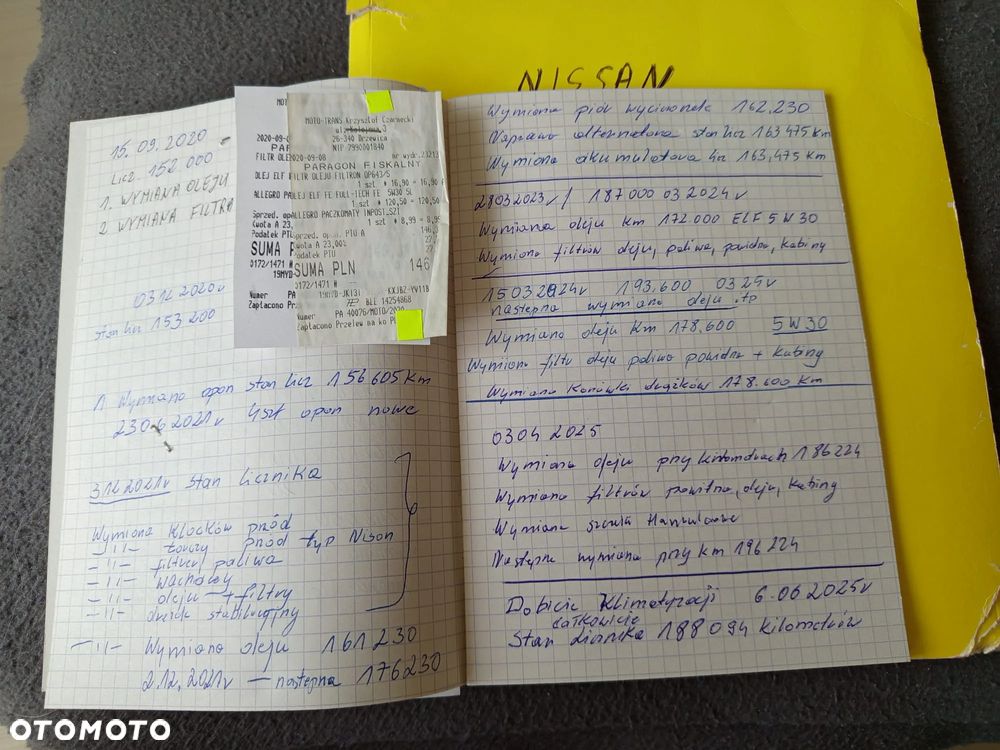 NISSAN
15.09.2020
Licz 152 000
1. WYMIANA OLEJU
2 WYMIANA FILTRA
03.12 2020r
stan licz 153 200
1 Wymiana opon stan licz 156 605 km
23 06 2021r 4szt opon nowe
3.12 2021r stan licznika
Wymiana klocków przód
-11- tarczy przód typ Nison
-11- filtru paliwa
-11- wachaczy
-11- oleju + filtry
-11- drążek stabilizacyjny
-11- Wymiana oleju 161 230
2.12.2021r — następna 176230
MOTO-TRANS Krzysztof Czarnecki
26-340 Drzewica
NIP 7990001840
2020-09-08 nr wydr.23213
PARAGON FISKALNY
FILTR OLEJU FILTRON OP643/5
1 szt * 16,90 = 16,90
OLEJ ELF FE FULL-TECH FE 5W30 5L
1 szt * 120,50 = 120,50
ALLEGRO PACZKOMATY INPOST_SZT
1 szt * 8,99 = 8,99
Sprzed. opod. PTU A
Kwota A 23,00%
Podatek PTU
SUMA PLN 146
0172/1471
BLE 14254868
Numer PA 40076/MOTO/2020
Zapłacono Przelew na ko
Wymiana piór wycieraczek 162.230
Naprawa alternatora stan licz 163 475 km
Wymiana akumulatora km 163,475 km
28 03 2023r / 187000 03 2024r
Wymiana oleju km 172.000 ELF 5W30
Wymiana filtrów oleju, paliwa, powietrza, kabiny
15 03 2024r 193.600 03 25r
następna wymiana oleju
Wymiana oleju km 178.600 5W30
Wymiana filtru oleju paliwa powietrza + kabiny
Wymiana końcówki drążków 178.600 km
03 04 2025
Wymiana oleju przy kilometrach 186224
Wymiana filtrów powietrza, oleju, kabiny
Wymiana szczęk Hamulcowe
Następna wymiana przy km 196224
Dobicie klimatyzacji 6.06 2025r
całkowicie
Stan licznika 188 094 kilometrów
OTOMOTO